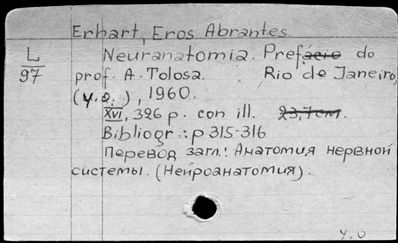 Erhart, Eros Abrantes
L
97
Neuranatomia. Prefácio do
prof. A. Tolosa. Rio de Janeiro,
(у.о.), 1960.
XVI, 326 p. con ill. 23,7 cm.
Bibliogr.: p 315-316
Перевод загл.: Анатомия нервной
системы. (Нейроанатомия).
у.о